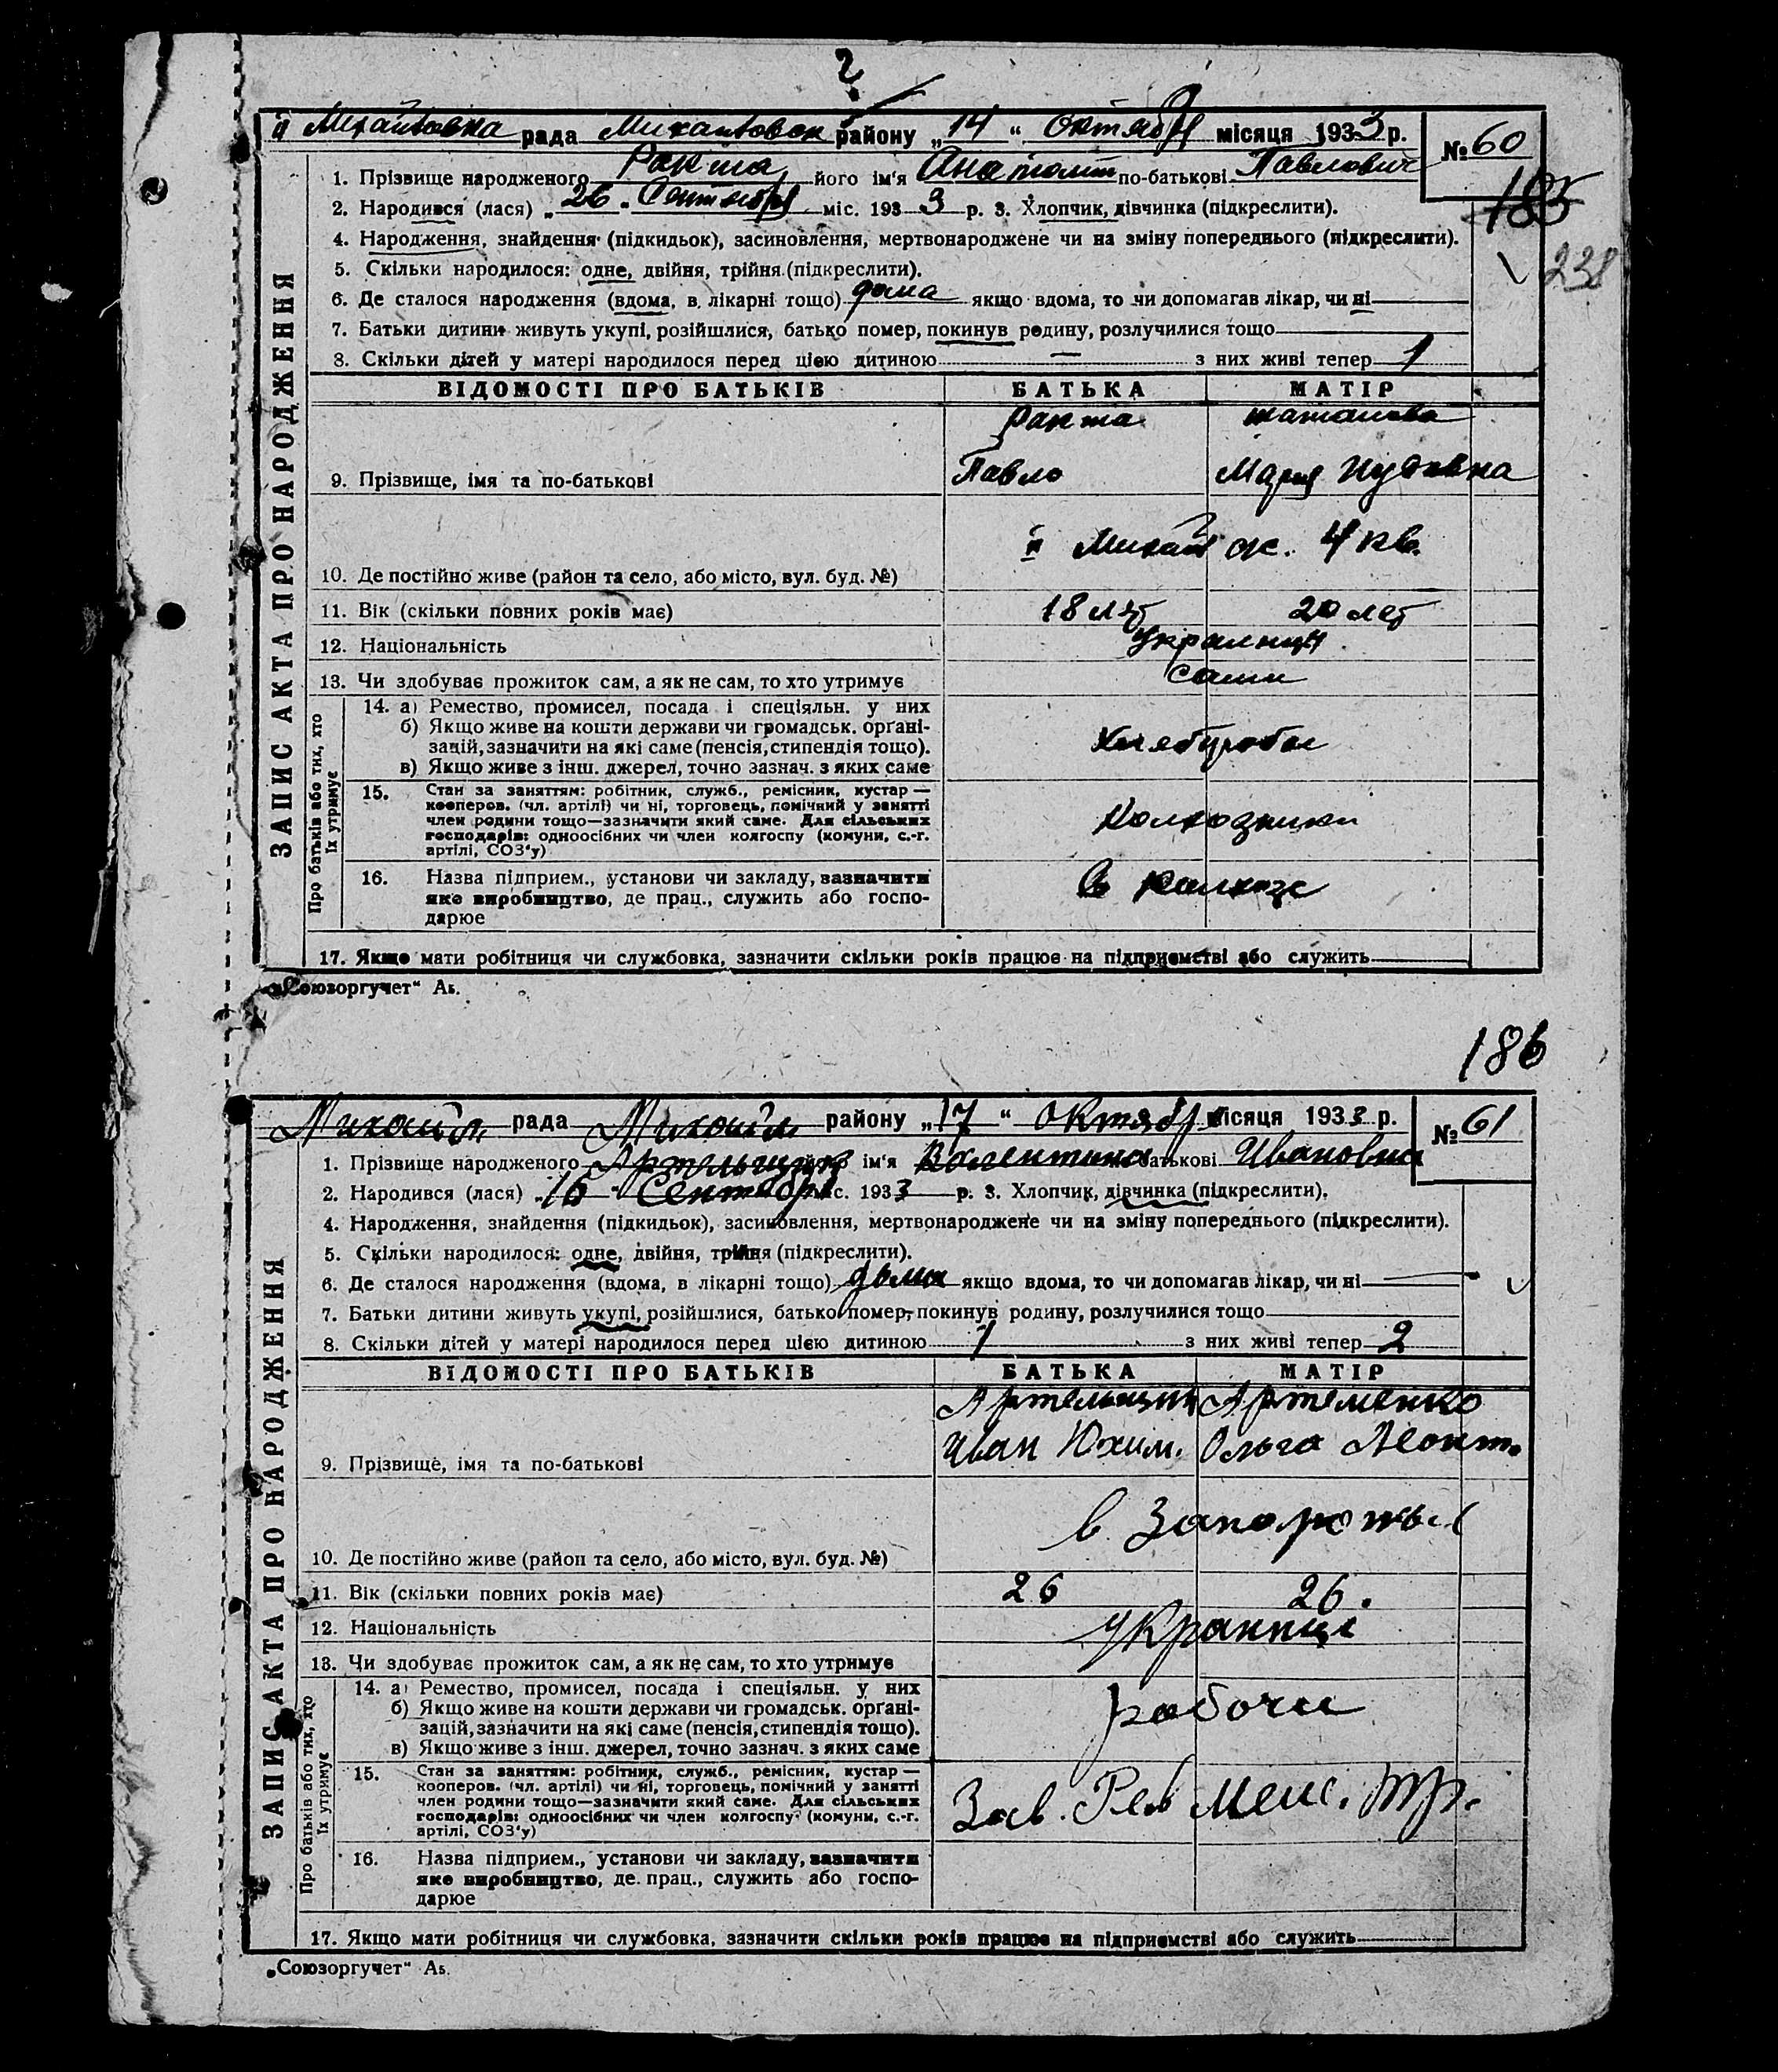 2
Михайловка рада Михайловск району „14" Октября місяця 1933 р.
№ 60
1. Прізвище народженого Ракта його ім'я Анатолий по-батькові Павлович
185
2. Народився (лася) „26" Сентября міс. 1933 р. 3. Хлопчик, дівчинка (підкреслити).
4. Народження, знайдення (підкидьок), засиновлення, мертвонароджене чи на зміну попереднього (підкреслити).
238
5. Скільки народилося: одне, двійня, трійня (підкреслити).
6. Де сталося народження (вдома, в лікарні тощо) дома якщо вдома, то чи допомагав лікар, чи ні
7. Батьки дитини живуть укупі, розійшлися, батько помер, покинув родину, розлучилися тощо
8. Скільки дітей у матері народилося перед цією дитиною — з них живі тепер 1
ЗАПИС АКТА ПРО НАРОДЖЕННЯ
ВІДОМОСТІ ПРО БАТЬКІВ БАТЬКА МАТІР
Ракта
9. Прізвище, імя та по-батькові Павло Мария
4 кв.
10. Де постійно живе (район та село, або місто, вул. буд. №)
11. Вік (скільки повних років має) 18 лет 20 лет
12. Національність Украинцы
13. Чи здобуває прожиток сам, а як не сам, то хто утримує Сами
Про батьків або тих, хто їх утримує
14. а) Ремество, промисел, посада і спеціяльн. у них
б) Якщо живе на кошти держави чи громадськ. орґані-
зацій, зазначити на які саме (пенсія, стипендія тощо).
в) Якщо живе з інш. джерел, точно зазнач. з яких саме
Хлеборобы
15. Стан за заняттям: робітник, служб., ремісник, кустар —
кооперов. (чл. артілі) чи ні, торговець, помічний у занятті
член родини тощо—зазначити який саме. Для сільських
господарів: одноосібних чи член колгоспу (комуни, с.-г.
артілі, СОЗ'у)
Колхозники
16. Назва підприєм., установи чи закладу, зазначити
яке виробництво, де прац., служить або госпо-
дарює
В колхозе
17. Якщо мати робітниця чи службовка, зазначити скільки років працює на підприємстві або служить
„Союзоргучет" Аь.
186
Михайл. рада Михайл району „17" Октября місяця 1933 р.
№ 61
1. Прізвище народженого Артельщик його ім'я Валентина по-батькові Ивановна
2. Народився (лася) „16" Сентября міс. 1933 р. 3. Хлопчик, дівчинка (підкреслити).
4. Народження, знайдення (підкидьок), засиновлення, мертвонароджене чи на зміну попереднього (підкреслити).
5. Скільки народилося: одне, двійня, трійня (підкреслити).
6. Де сталося народження (вдома, в лікарні тощо) дома якщо вдома, то чи допомагав лікар, чи ні
7. Батьки дитини живуть укупі, розійшлися, батько помер, покинув родину, розлучилися тощо
8. Скільки дітей у матері народилося перед цією дитиною 1 з них живі тепер 2
ЗАПИС АКТА ПРО НАРОДЖЕННЯ
ВІДОМОСТІ ПРО БАТЬКІВ БАТЬКА МАТІР
Артельщик Артеменко
9. Прізвище, імя та по-батькові Иван Юхим. Ольга Леонт.
в Запорожьи
10. Де постійно живе (район та село, або місто, вул. буд. №)
11. Вік (скільки повних років має) 26 26.
12. Національність Украинцы
13. Чи здобуває прожиток сам, а як не сам, то хто утримує
Про батьків або тих, хто їх утримує
14. а) Ремество, промисел, посада і спеціяльн. у них
б) Якщо живе на кошти держави чи громадськ. орґані-
зацій, зазначити на які саме (пенсія, стипендія тощо).
в) Якщо живе з інш. джерел, точно зазнач. з яких саме
рабочи
15. Стан за заняттям: робітник, служб., ремісник, кустар —
кооперов. (чл. артілі) чи ні, торговець, помічний у занятті
член родини тощо—зазначити який саме. Для сільських
господарів: одноосібних чи член колгоспу (комуни, с.-г.
артілі, СОЗ'у)
Зав.
16. Назва підприєм., установи чи закладу, зазначити
яке виробництво, де прац., служить або госпо-
дарює
17. Якщо мати робітниця чи службовка, зазначити скільки років працює на підприємстві або служить
„Союзоргучет" Аь.